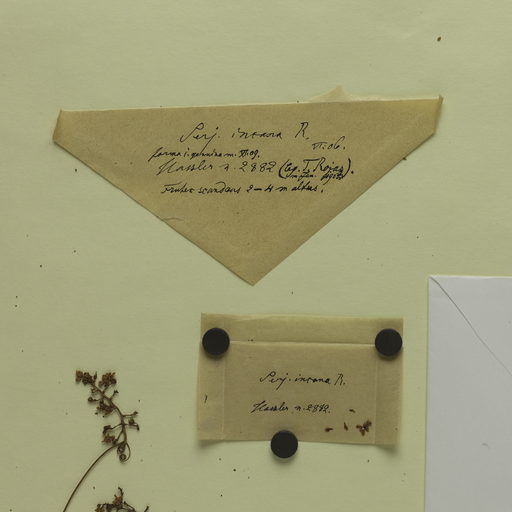 Serj. incana R.
VI.06.
forma i. genuina m. VI.09.
Hassler n. 2882 (leg. T. Rojas).
Frutex scandens 2-4 m altus.
Serj. incana R.
Hassler n. 2882.